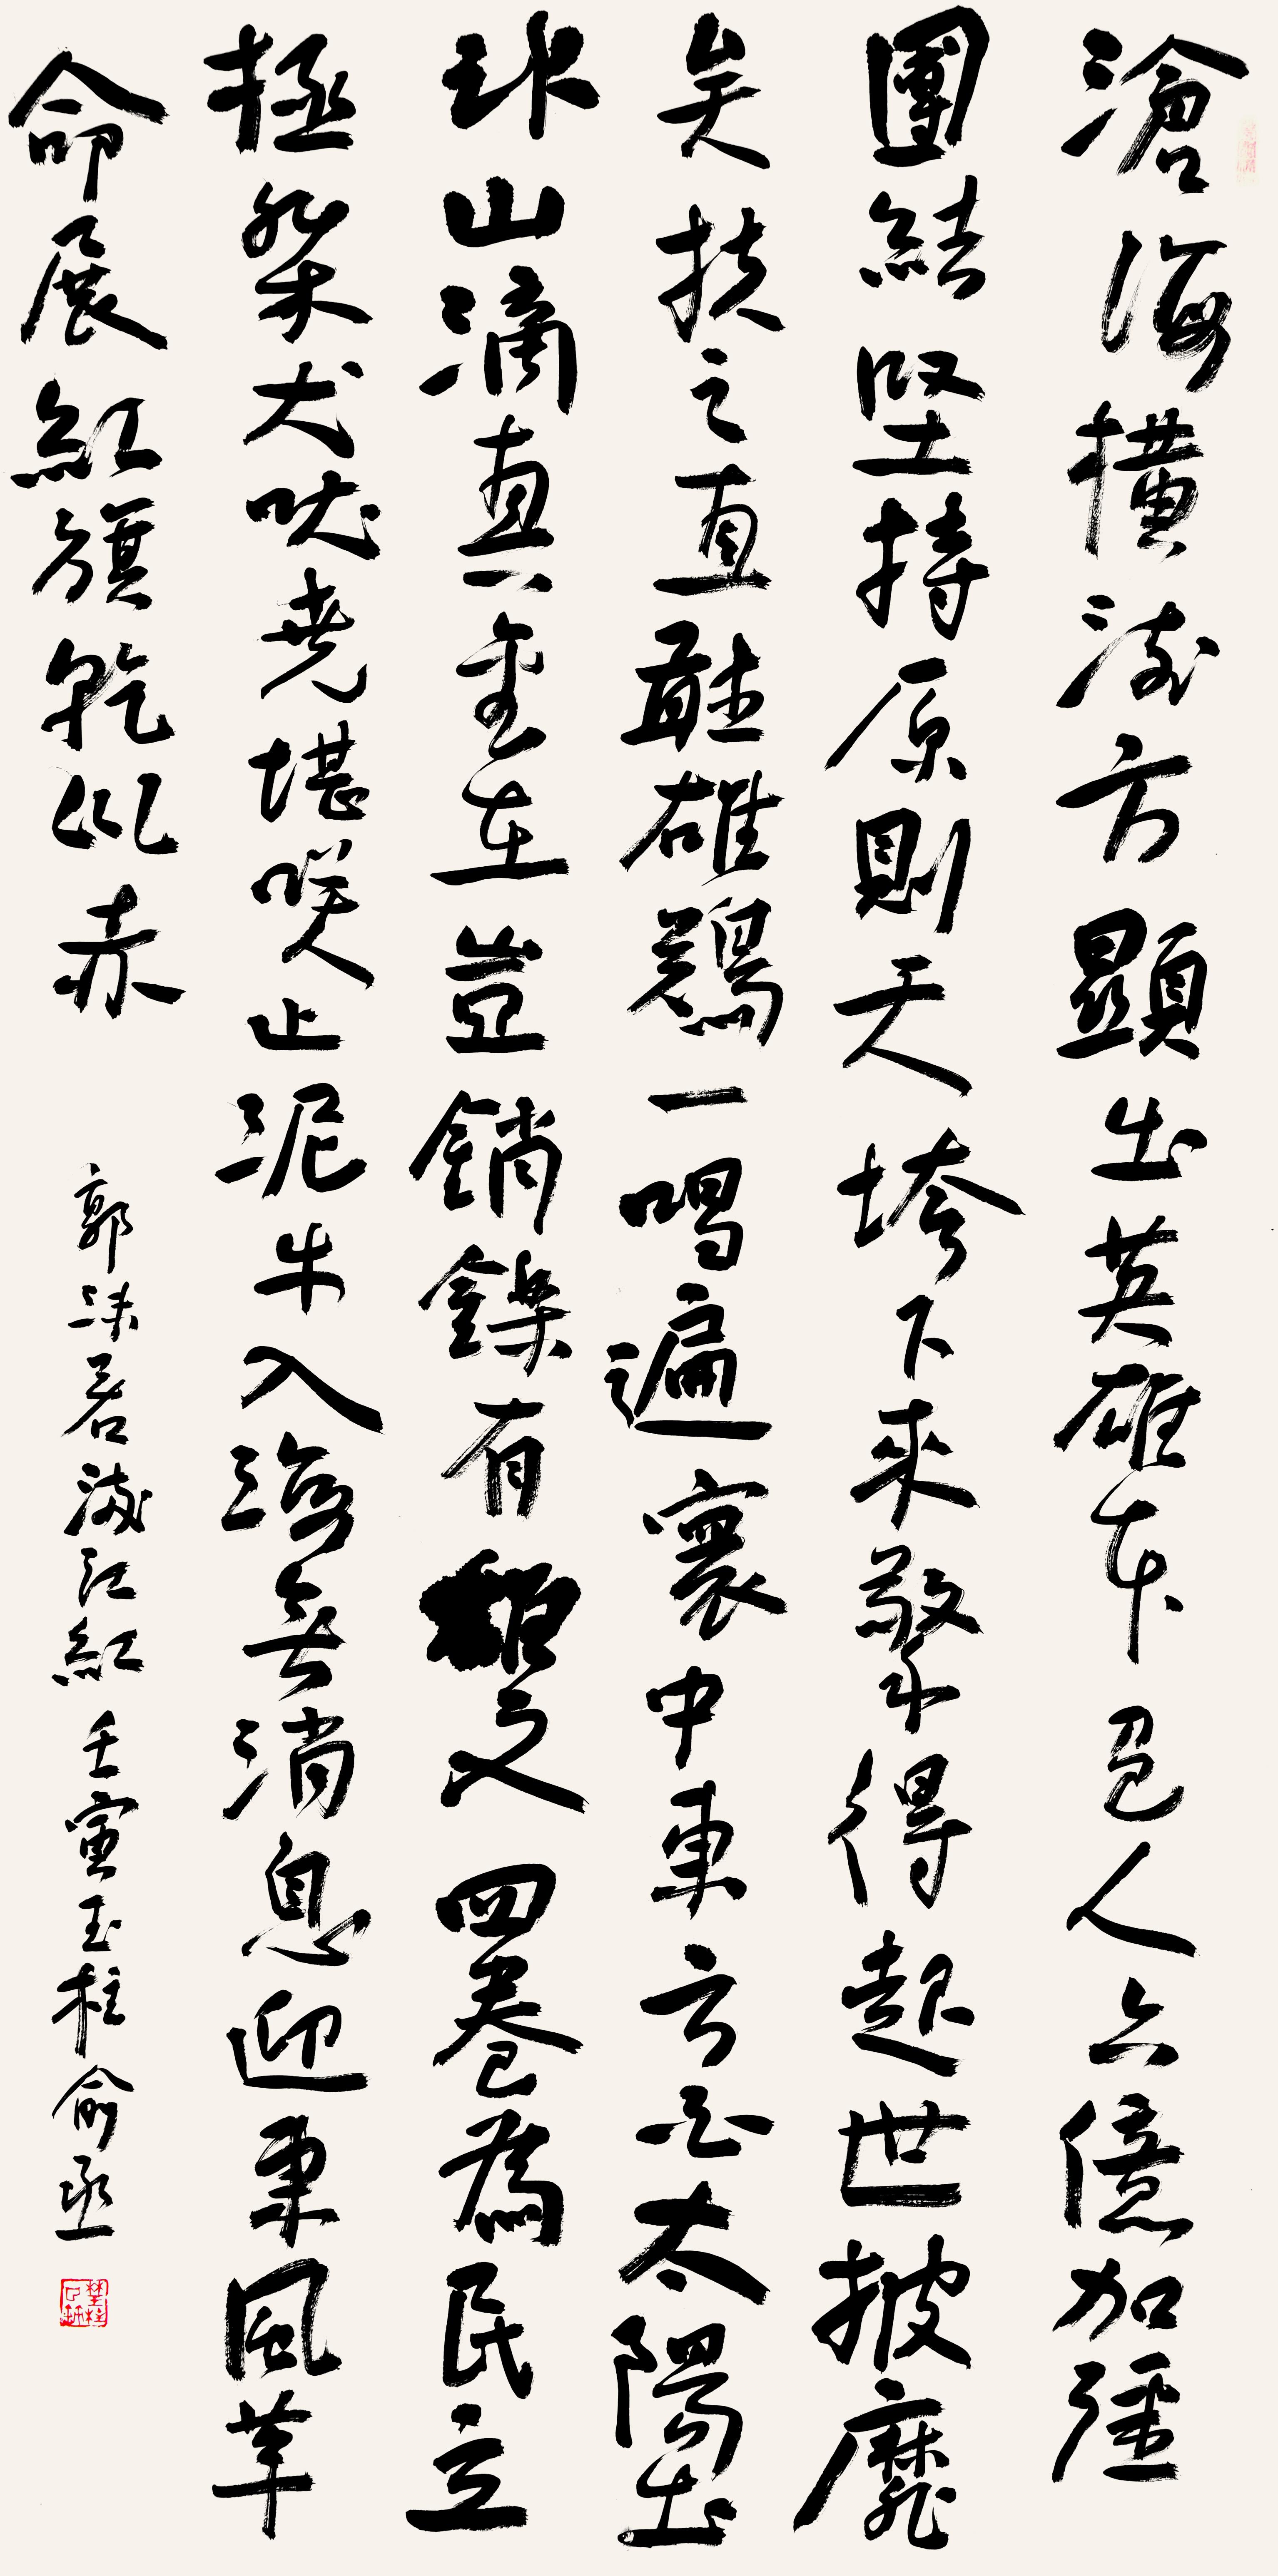 滄海橫流方顯出英雄本色人六億加強
團結堅持原則天垮下來擎得起世披靡
矣扶之直聽雄鷄一唱遍寰中東方白太陽出
冰山滴真金在豈銷鑠有雄文四卷為民立
極桀犬吠堯堪咲止泥牛入海無消息迎東風革
命展紅旗乾坤赤 郭沫若滿江紅 壬寅玉柱俞丞